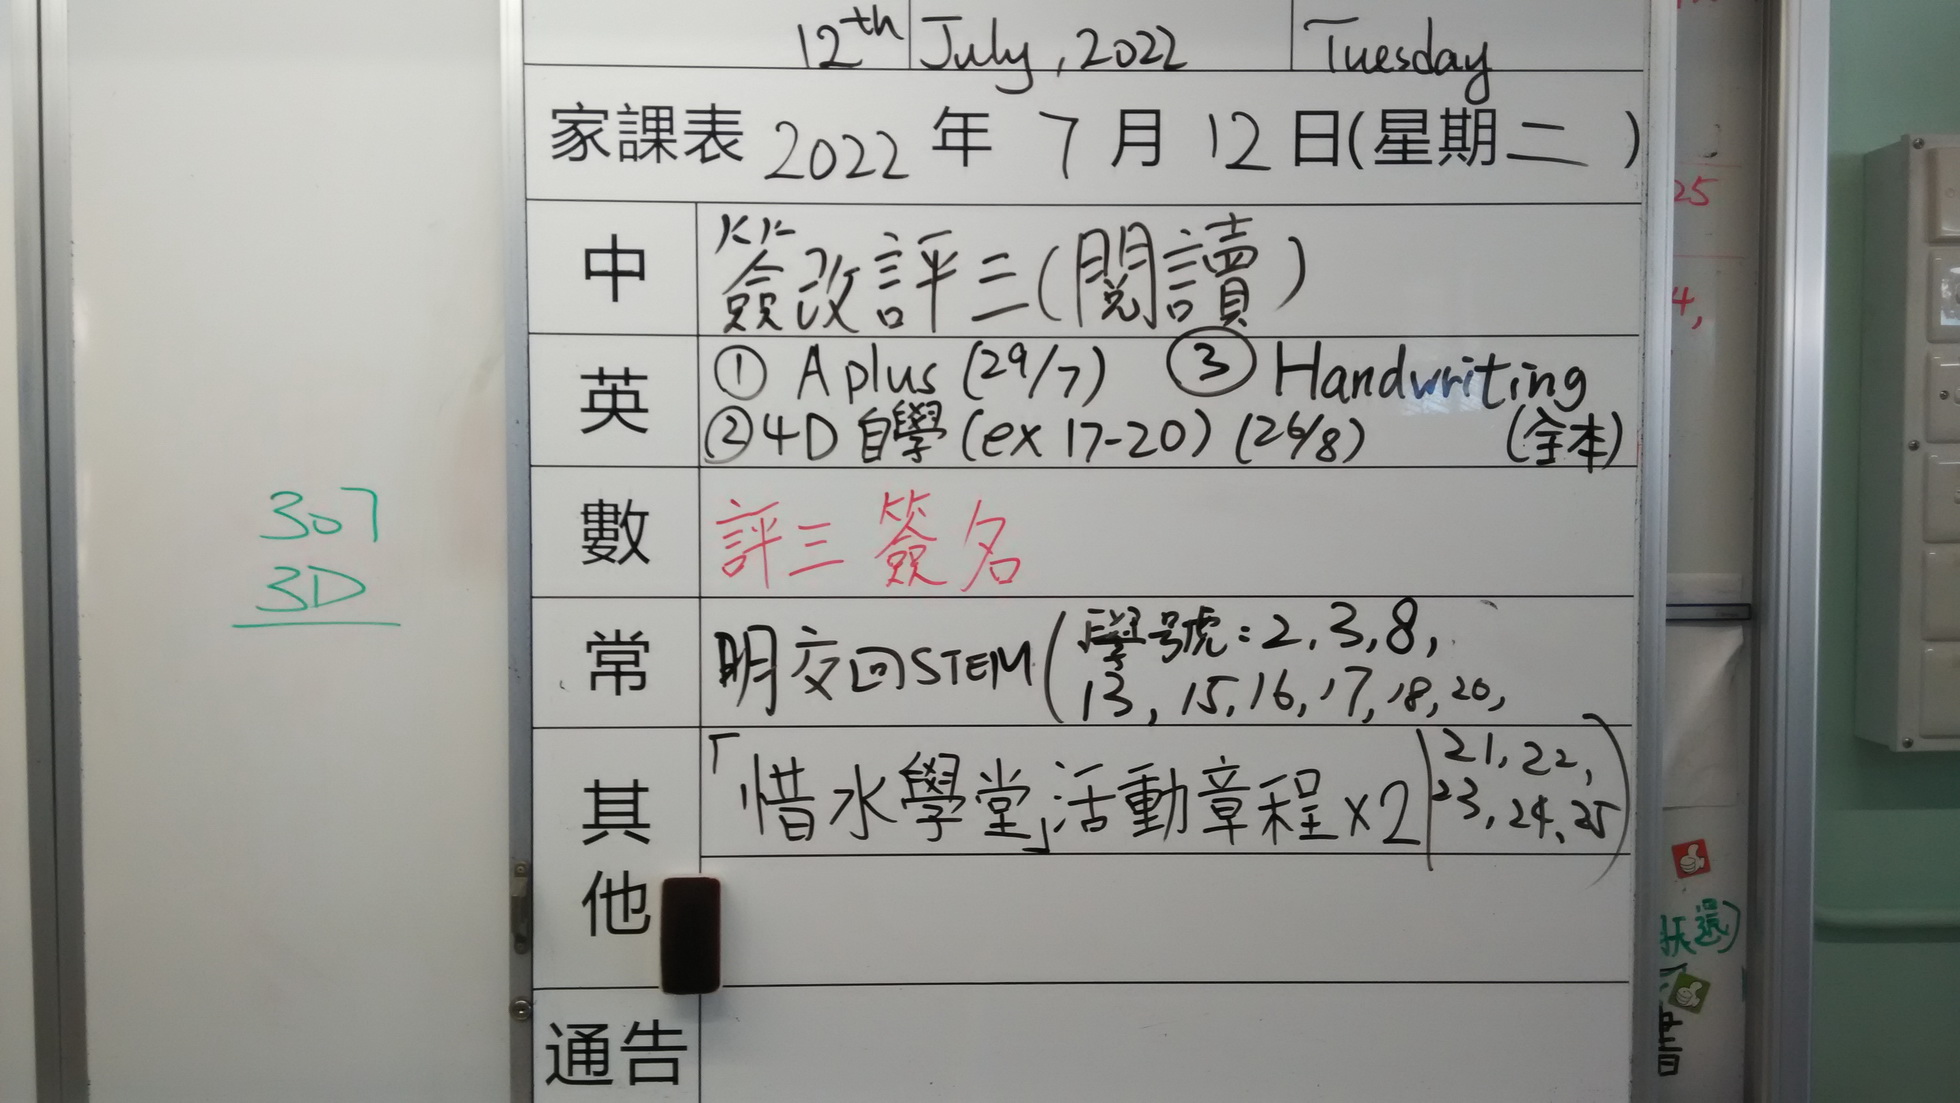 12th July, 2022 Tuesday
家課表 2022 年 7 月 12 日(星期二)
中 簽改評三(閱讀)
英 ① A plus (29/7) ③ Handwriting
② 4D 自學 (ex 17-20) (26/8) (全本)
數 評三 簽名
常 明交回STEM(學號:2,3,8,
13, 15,16,17,18,20,
21,22,
23,24,25)
其他 「惜水學堂」活動章程x2
通告
307
3D
25
4,